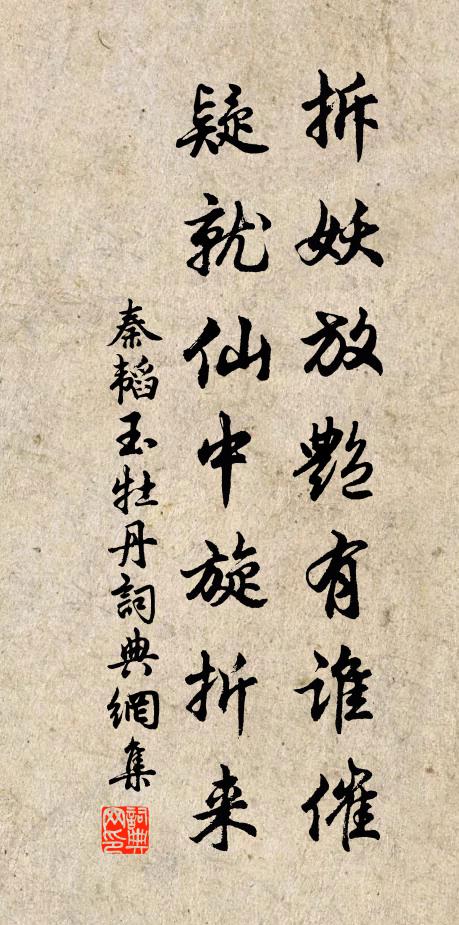 拆妖放艷有誰催
疑就仙中旋折来
秦韜玉牡丹詞典網集
詞典
网印